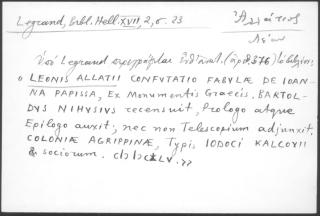 Legrand, Bibl. Hell. XVII, 2, σ. 23
Ἀλλάτιος
Λέων
Ὑπὸ Legrand περιγράφεται (ἀρ. 376) τὸ βιβλίον:
LEONIS ALLATII CONFUTATIO FABULÆ DE IOAN-
NA PAPISSA, Ex Monumentis Graecis. BARTOL-
DUS NIHUSIUS recensuit, Prologo atque
Epilogo auxit; nec non Telescopium adjunxit.
COLONIÆ AGRIPPINÆ, Typis IODOCI KALCOVII
& sociorum.